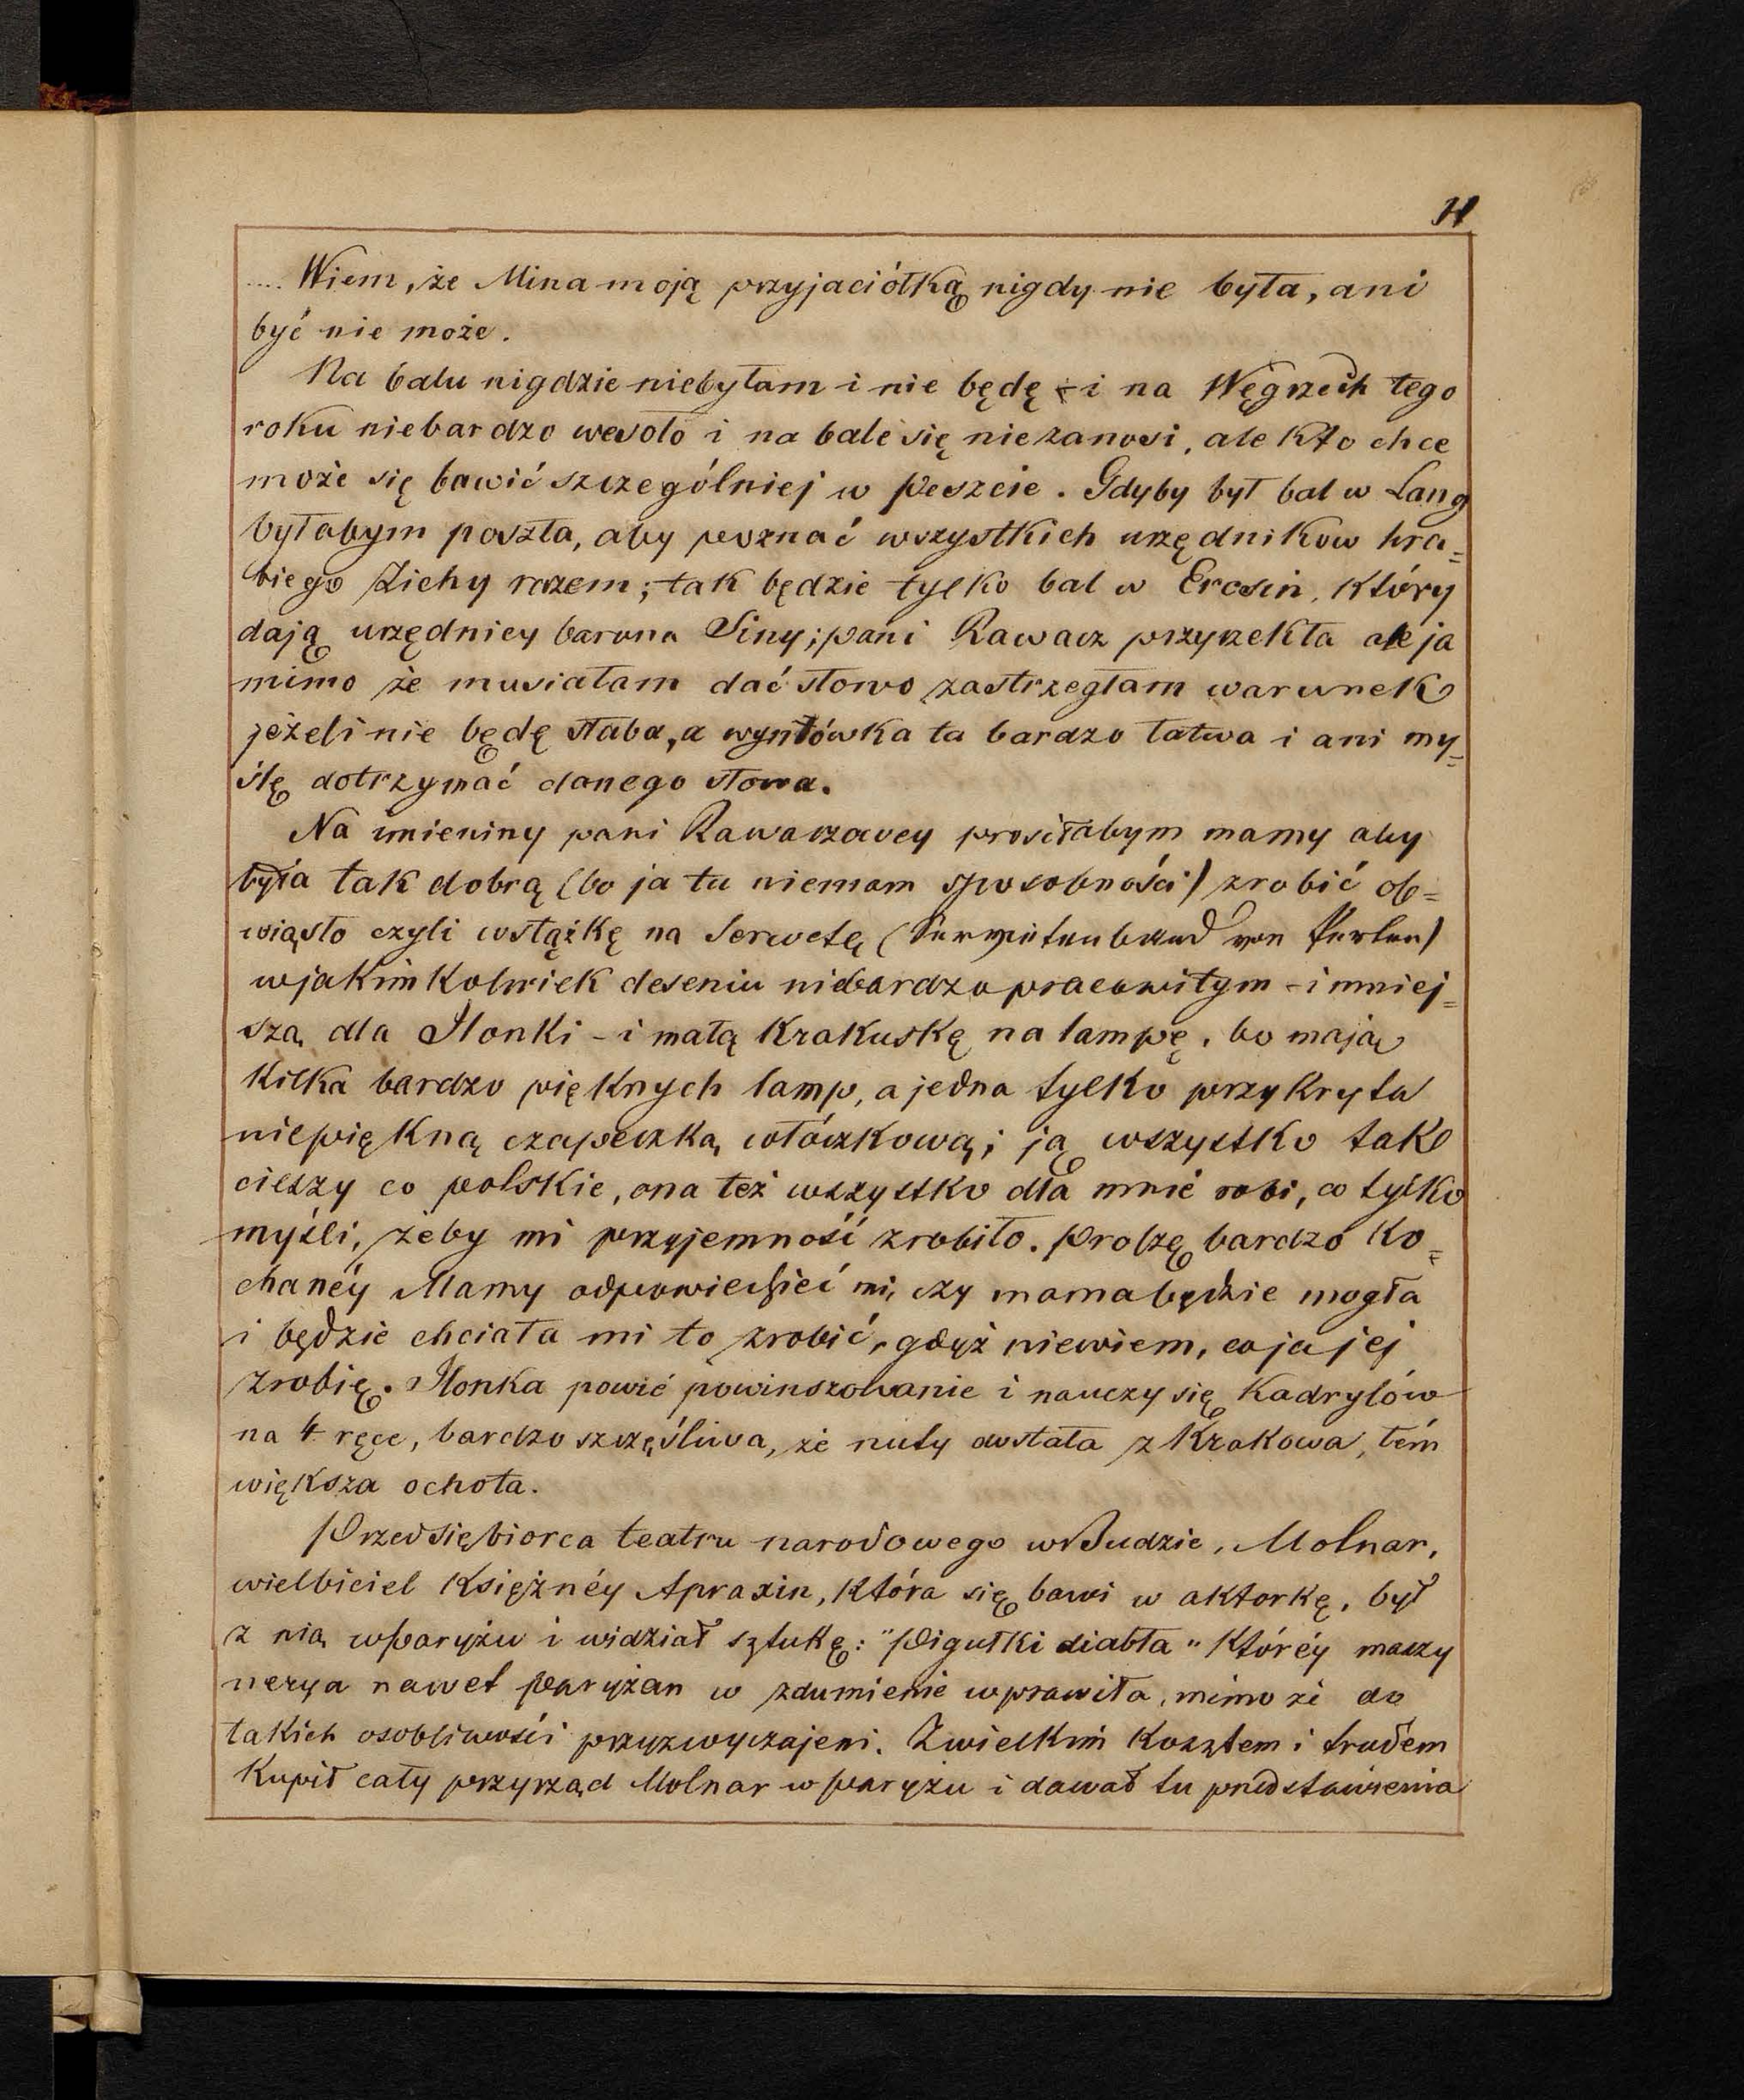 .... Wiem, że Mina moją przyjaciółką nigdy nie była, ani
być nie może.
Na balu nigdzie niebyłam i nie będę - i na Węgrzech tego
roku niebardzo wesoło i na bale się niezanosi, ale kto chce
może się bawić szczególniej w Peszcie. Gdyby był bal w Lang
byłabym poszła, aby poznać wszystkich urzędników hra=
biego Zichy razem; tak będzie tylko bal w Ercsin, który
dają urzędnicy barona Siny; pani Rawacz przyrzekła ale ja
mimo że musiałam dać słowo zastrzegłam warunek
jeżeli nie będę słaba, a wymówka ta bardzo łatwa i ani my=
ślę dotrzymać danego słowa.
Na imieniny pani Rawaczowey prosiłabym mamy aby
była tak dobrą (bo ja tu niemam sposobności) zrobić ob=
wiąsło czyli wstążkę na Serwetę (Servietenband von Perlen)
w jakimkolwiek deseniu niebardzo pracowitym - i mniej=
szą dla Ilonki - i małą Krakuskę na lampę, bo mają
kilka bardzo pięknych lamp, a jedna tylko przykryta
niepiękną czapeczką włóczkową; ją wszystko tak
cieszy co polskie, ona też wszystko dla mnie robi, co tylko
myśli, żeby mi przyjemność zrobiło. Proszę bardzo ko=
chanéy Mamy odpowiedzieć mi, czy mama będzie mogła
i będzie chciała mi to zrobić, gdyż niewiem, co ja jej
zrobię. Ilonka powié powinszowanie i nauczy się Kadrylów
na 4 ręce, bardzo szczęśliwa, że nuty dostała z Krakowa, tém
większa ochota.
Przedsiębiorca teatru narodowego w Budzie, Molnar,
wielbiciel Księżnéy Apraxin, która się bawi w aktorkę, był
z nią w Paryżu i widział sztukę: "Pigułki diabła" któréy maszy
nerya nawet Paryżan w zdumienie wprawiła, mimo że do
takich osobliwości przyzwyczajeni. Z wielkim kosztem i trudem
kupił cały przyrząd Molnar w Paryżu i dawał tu przedstawienia